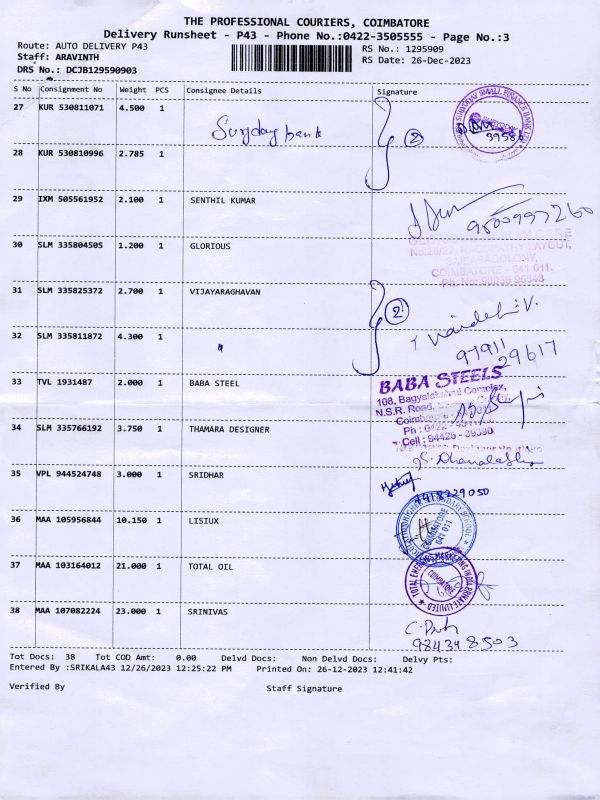 THE PROFESSIONAL COURIERS, COIMBATORE
Delivery Runsheet - P43 - Phone No.:0422-3505555 - Page No.:3
Route: AUTO DELIVERY P43 RS No.: 1295909
Staff: ARAVINTH RS Date: 26-Dec-2023
DRS No.: DCJB129590903
S No Consignment No Weight PCS Consignee Details Signature
27 KUR 530811071 4.500 1
Suryday bank 2
39586
28 KUR 530810996 2.785 1
29 IXM 505561952 2.100 1 SENTHIL KUMAR
30 SLM 335804505 1.200 1 GLORIOUS
COIMBATORE - 641 011.
31 SLM 335825372 2.700 1 VIJAYARAGHAVAN 2
32 SLM 335811872 4.300 1
97911
29617
33 TVL 1931487 2.000 1 BABA STEEL
BABA STEELS
108, Bagyalakshmi Complex,
N.S.R. Road,
34 SLM 335766192 3.750 1 THAMARA DESIGNER
Cell : 94426 - 39390
35 VPL 944524748 3.000 1 SRIDHAR
36 MAA 105956844 10.150 1 LISIUX
COIMBATORE
641 011
37 MAA 103164012 21.000 1 TOTAL OIL
TOTAL ENERGIES MARKETING INDIA PRIVATE LIMITED
COIMBATORE
38 MAA 107082224 23.000 1 SRINIVAS
Tot Docs: 38 Tot COD Amt: 0.00 Delvd Docs: Non Delvd Docs: Delvy Pts:
Entered By :SRIKALA43 12/26/2023 12:25:22 PM Printed On: 26-12-2023 12:41:42
Verified By Staff Signature